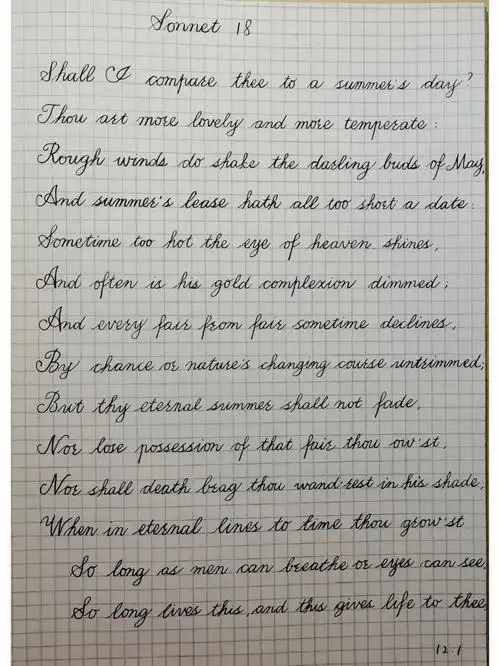 Sonnet 18
Shall I compare thee to a summer's day?
Thou art more lovely and more temperate:
Rough winds do shake the darling buds of May,
And summer's lease hath all too short a date:
Sometime too hot the eye of heaven shines,
And often is his gold complexion dimmed;
And every fair from fair sometime declines,
By chance or nature's changing course untrimmed;
But thy eternal summer shall not fade,
Nor lose possession of that fair thou ow'st;
Nor shall death brag thou wand'rest in his shade,
When in eternal lines to time thou grow'st
So long as men can breathe or eyes can see,
So long lives this, and this gives life to thee
12.1